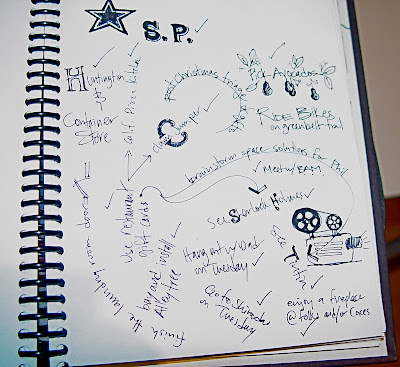 S.P.
Huntington
Container
Store
calif. Pizza Kitchen
Real Christmas tree
Clean bumper
Pick Avocados
RIDE BIKES
on greenbelt trail
brainstorm space solutions for
Meet w/
use restaurant
gift cards
See Sherlock Holmes
Hang out w/ Dad
on Tuesday
Go to
on Tuesday
See Tintin
enjoy a fireplace
@ folks and/or
finish the laundry room door
install
tree